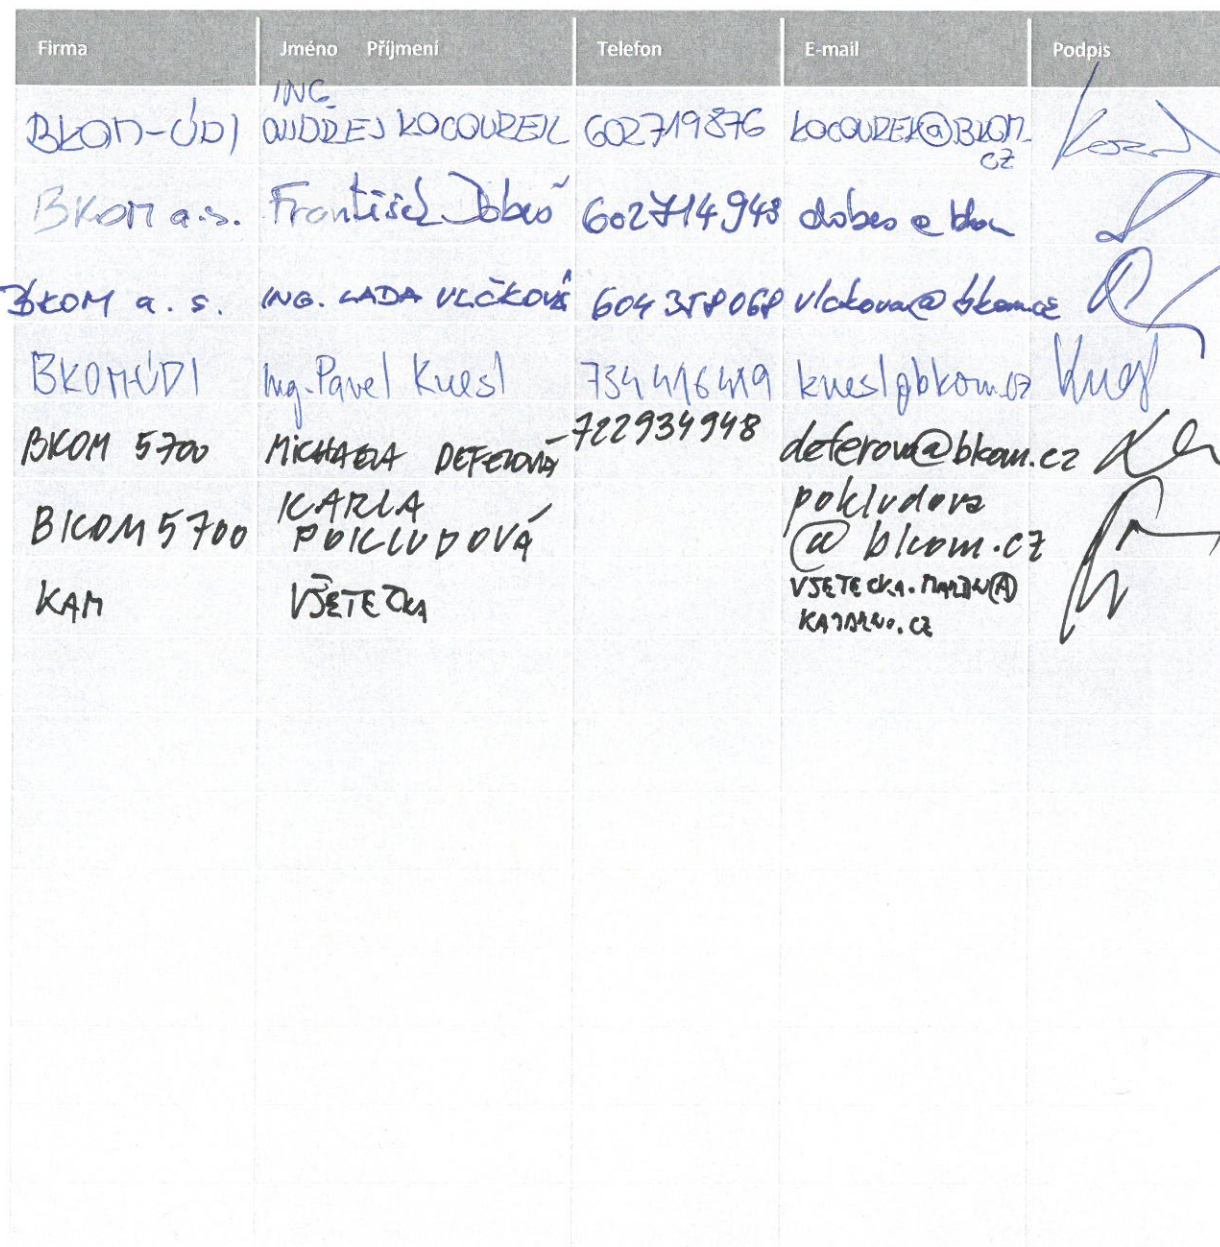 Firma Jméno Příjmení Telefon E-mail Podpis
ING.
BKOM-ÚDI ONDŘEJ KOCOUREK 602719876 KOCOUREK@BKOM.
CZ
BKOM a.s. František Dobeš 602714943 dobes@bkom
BKOM a. s. ING. LADA VLČKOVÁ 604 358068 vlckova@bkom.cz
BKOM-ÚDI Ing. Pavel Knesl 734 416 419 knesl@bkom.cz
BKOM 5700 MICHAELA DEFEROVÁ 722934948 deferova@bkom.cz
KARLA pokludova
BKOM 5700 POKLUDOVÁ @bkom.cz
KAM VŠETEČKA VSETECKA.MARTIN@
KAMBRNO.CZ